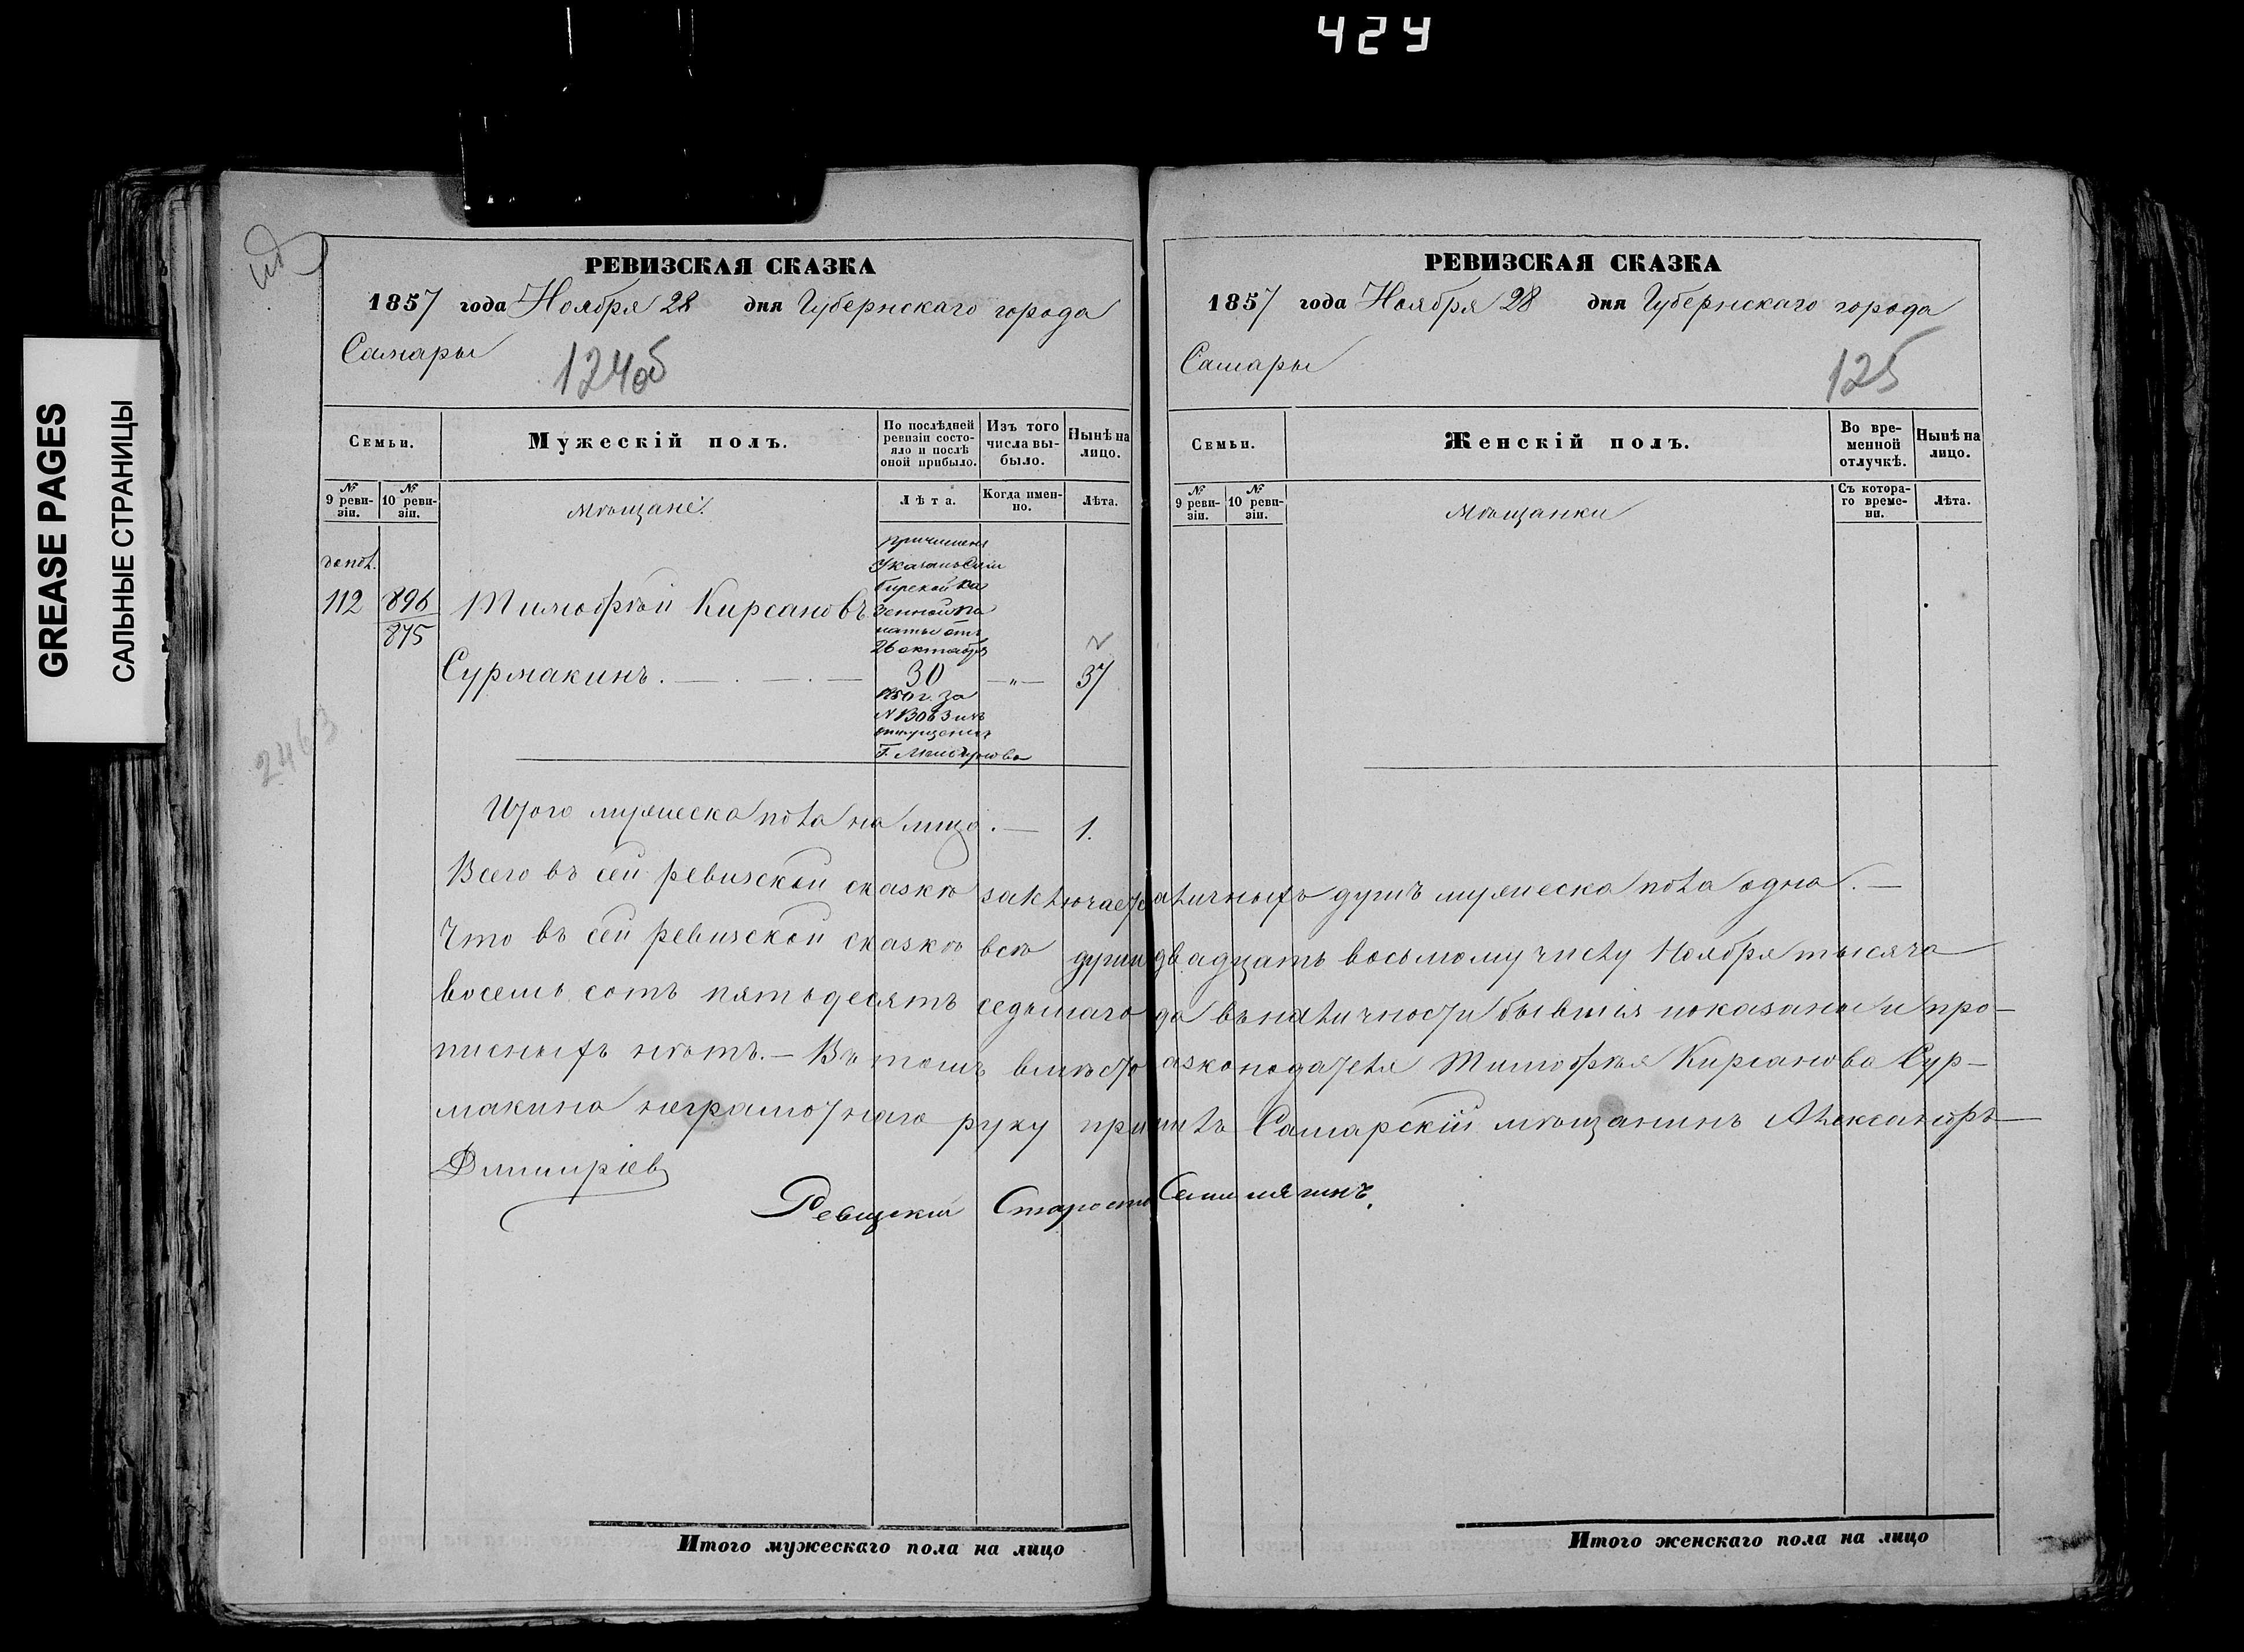 424
GREASE PAGES
САЛЬНЫЕ СТРАНИЦЫ
РЕВИЗСКАЯ СКАЗКА
1857 года Ноября 28 дня Губернскаго города
Самары
124об
Семьи.
Мужескій полъ.
По послѣдней ревизіи состояло и послѣ оной прибыло.
Изъ того числа выбыло.
Нынѣ на лицо.
№ 9 ревизіи.
№ 10 ревизіи.
Мѣщане:
Лѣта.
Когда именно.
Лѣта.
допол.
112
896
875
Тимофѣй Кирсановъ
Сурмакинъ.
причисленъ
Указомъ Сим
бирской Ка
зенной Па
латы отъ
26 октября
30
1850 г. за
N 13063 изъ
отпущенныхъ
Г.
— „ —
37
2463
Итого мужеска пола на лицо. — 1.
Всего въ сей ревизской сказкѣ заключается
Что въ сей ревизской сказкѣ всѣ души
восемь сотъ пятьдесятъ седьмаго
писныхъ нѣтъ. — Въ томъ вмѣсто
макина неграмотнаго руку при
Дмитріев
Ревизскій Староста
Итого мужескаго пола на лицо
РЕВИЗСКАЯ СКАЗКА
1857 года Ноября 28 дня Губернскаго города
Самары
125
Семьи.
Женскій полъ.
Во временной отлучкѣ.
Нынѣ на лицо.
№ 9 ревизіи.
№ 10 ревизіи.
Мѣщанки
Съ котораго времени.
Лѣта.
аличныхъ душъ мужеска пола одна. —
двадцать восьмому числу Ноября тысяча
да въ наличности бывшія показаны и про-
азкоподателя Тимофѣя Кирсанова Сур-
илъ Самарскій мѣщанинъ Александръ
Итого женскаго пола на лицо